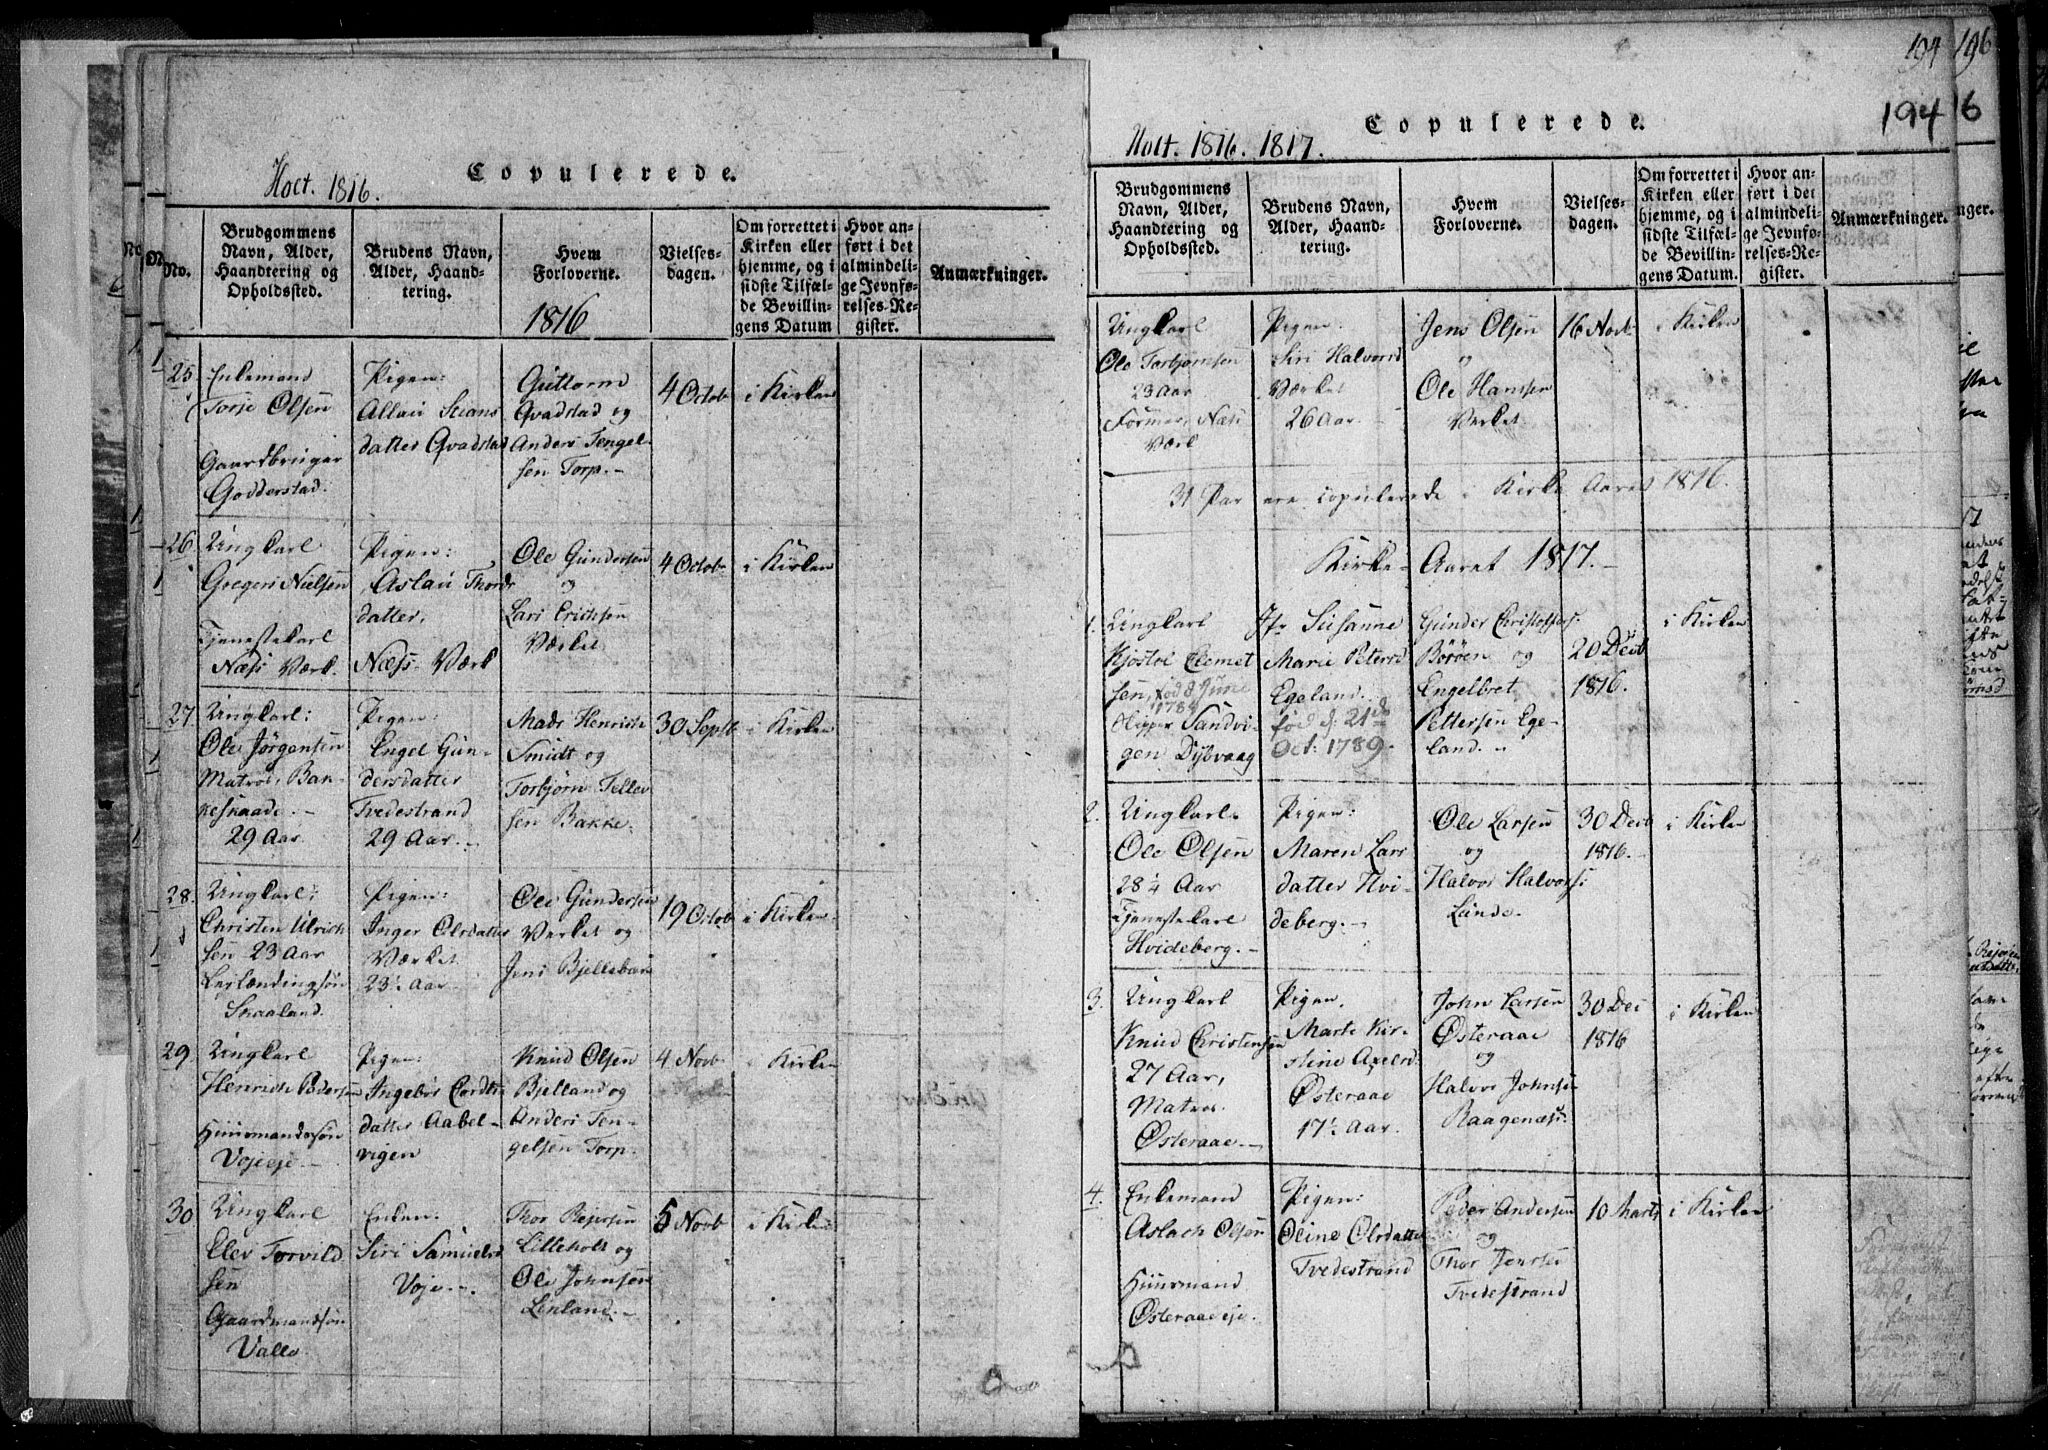 Holt. 1816.
Copulerede.
No.
Brudgommens
Navn, Alder,
Haandtering og
Opholdssted.
Brudens Navn,
Alder, Haand-
tering.
Hvem
Forloverne.
1816
Vielses-
dagen.
Om forrettet i
Kirken eller
hjemme, og i
sidste Tilfæl-
de Bevillin-
gens Datum
Hvor an-
ført i det
almindeli-
ge Jevnfø-
relses-Re-
gister.
Anmærkninger.
25.
Enkemand
Torje Olsen
Gaardbruger
Godderstad.
Pigen:
datter Qvadstad
Guttorm
Qvadstad og
Anders Tengel-
sen Torp.-
4 Octob
i Kirken
26
Ungkarl
Gregers Nielsen
Tjenestekarl
Næss Værk.
Pigen:
Aslau Thords
datter,
Næss-Værk
Ole Gundersen
og
Lars Erichsen
Værket
4 Octob
i Kirken
27.
Ungkarl:
Ole Jørgensen
Matros, Ban-
keskaade.-
29 Aar.
Pigen:
Engel Gun-
dersdatter
Tvedestrand
29 Aar.-
Mads Henrich
Smidt og
Torbjørn Tellev
sen Bakke.
30 Septb
i Kirken
28.
Ungkarl:
Christen Ulrich
sen 23 Aar
Leilændingsøn
Skaaland.
Pigen:
Inger Olsdatter
Værket
23½ Aar
Ole Gundersen
Værket og
Jens
19 Octob
i Kirken
29
Ungkarl
Henrich Pedersen
Huusmandssøn
Vojeeje.-
Pigen:
datter Aabel-
vigen
Knud Olsen
Bjelland og
Anders Ten-
gelsen Torp.
4 Novb
i Kirken
30
Ungkarl
Elev Torvild
sen
Gaardmandssøn
Valle
Enken:
Siri Samuelsd
Voje-.
Thor Rejersen
Lilleholt og
Ole Johnsen
Lenland.-
5 Novb
i Kirken
194
194
Copulerede.
Holt. 1816. 1817.
Brudgommens
Navn, Alder,
Haandtering og
Opholdssted.
Brudens Navn,
Alder, Haand-
tering.
Hvem
Forloverne.
Vielses-
dagen.
Om forrettet i
Kirken eller
hjemme, og i
sidste Tilfæl-
de Bevillin-
gens Datum.
Hvor an-
ført i det
almindeli-
ge Jevnfø-
relses-Re-
gister.
Anmærkninger.
Ungkarl
Ole Torbjørnsen
23 Aar
Former, Næss
Værk
Pigen:
Siri Halvorsd
Værket
26 Aar.
Jens Olsen
og
Ole Hansen
Værket
16 Novb
i Kirken
31 Par ere copulerede i Kirke Aaret 1816.
Kirke-Aaret 1817.-
1.
Ungkarl
Kjøstol Clemet
sen, fød 8 Junii
1784
Skipper Sandvi-
gen Dybvaag
Jfr Susanne
Marie Petersd
Egeland.
fød d: 21de
Oct: 1789.
Gunder Christophers:
Borøen og
Engelbret
Pettersen Ege-
land.-
20 Decb
1816.
i Kirken
2.
Ungkarl
Ole Olsen
28¼ Aar
Tjenestekarl
Hvideberg.-
Pigen:
Maren Lars
datter Hvi-
deberg.-
Ole Larsen
og
Halvor Halvors:
Lunde.
30 Decb
1816.-
i Kirken
3.
Ungkarl
Knud Christensen
27 Aar,
Matros
Østeraae.-
Pigen.
Marte Kir-
stine Axelsd.
Østeraae
17½ Aar.
John Larsen
Østeraae
og
Halvor Johnsen
Raagenæs:
30 Dec
1816
i Kirken
4.
Enkemand
Aslach Olsen
Huusmand
Østeraaeeje.
Pigen:
Oline Olsdatter
Tvedestrand
Peder Andersen
og
Thor Jensen
Tvedestrand
10 Marts
i Kirken
196
6